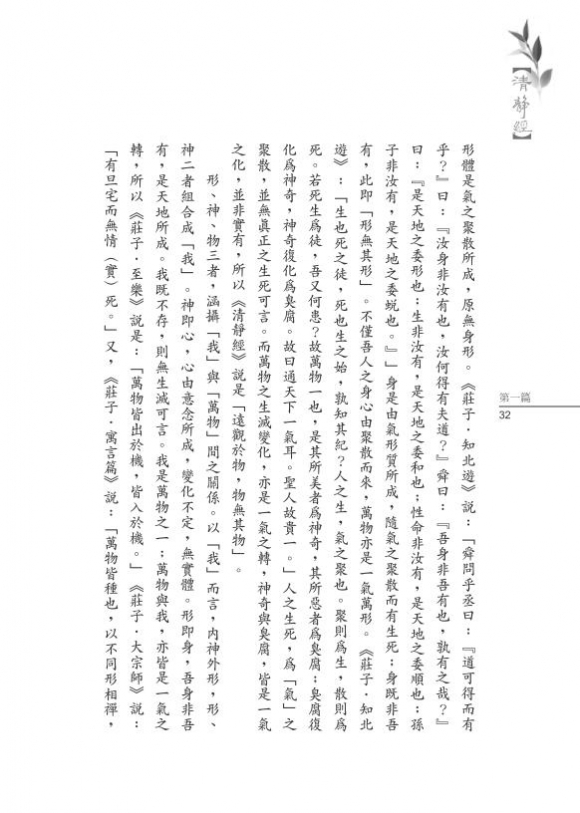 【清靜經】
第一篇
32
形體是氣之聚散所成，原無身形。《莊子．知北遊》說：「舜問乎丞曰：『道可得而有
乎？』曰：『汝身非汝有也，汝何得有夫道？』舜曰：『吾身非吾有也，孰有之哉？』
曰：『是天地之委形也；生非汝有，是天地之委和也；性命非汝有，是天地之委順也；孫
子非汝有，是天地之委蛻也。』」身是由氣形質所成，隨氣之聚散而有生死；身既非吾
有，此即「形無其形」。不僅吾人之身心由聚散而來，萬物亦是一氣萬形。《莊子．知北
遊》：「生也死之徒，死也生之始，孰知其紀？人之生，氣之聚也。聚則爲生，散則爲
死。若死生爲徒，吾又何患？故萬物一也，是其所美者爲神奇，其所惡者爲臭腐；臭腐復
化爲神奇，神奇復化爲臭腐。故曰通天下一氣耳。聖人故貴一。」人之生死，爲「氣」之
聚散，並無眞正之生死可言。而萬物之生滅變化，亦是一氣之轉，神奇與臭腐，皆是一氣
之化，並非實有，所以《清靜經》說是「遠觀於物，物無其物」。
形、神、物三者，涵攝「我」與「萬物」間之關係。以「我」而言，內神外形，形、
神二者組合成「我」。神即心，心由意念所成，變化不定，無實體。形即身，吾身非吾
有，是天地所成。我既不存，則無生滅可言。我是萬物之一；萬物與我，亦皆是一氣之
轉，所以《莊子．至樂》說是：「萬物皆出於機，皆入於機。」《莊子．大宗師》說：
「有旦宅而無情（實）死。」又，《莊子．寓言篇》說：「萬物皆種也，以不同形相禪，